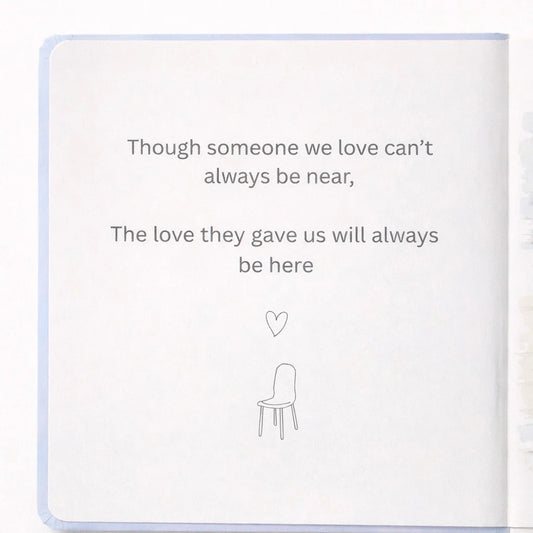 Though someone we love can’t
always be near,
The love they gave us will always
be here